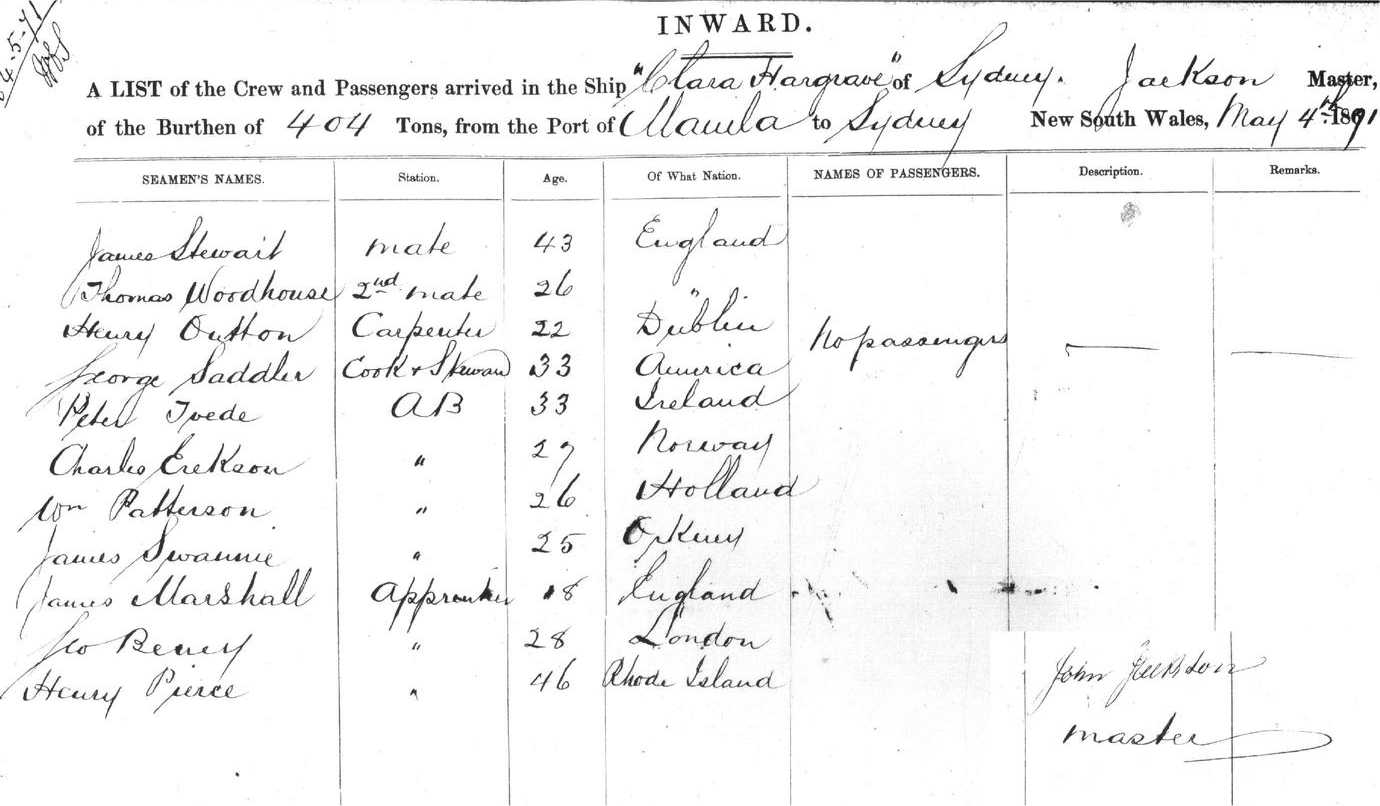 4-5-71
INWARD.
A LIST of the Crew and Passengers arrived in the Ship "Clara Hargrave" of Sydney. Jackson Master,
of the Burthen of 404 Tons, from the Port of Manila to Sydney New South Wales, May 4th 1871
SEAMEN'S NAMES. Station. Age. Of What Nation. NAMES OF PASSENGERS. Description. Remarks.
James Stewart mate 43 England
Thomas Woodhouse 2nd mate 26 "
Henry Outton Carpenter 22 Dublin No passengers
George Saddler Cook & Steward 33 America
Peter Tvede AB 33 Ireland
Charles Erekson " 27 Norway
Wm Patterson " 26 Holland
James Swannie " 25 Orkney
James Marshall Apprentice 18 England
Geo " 28 London
Henry Pierce " 46 Rhode Island
John Jackson
master